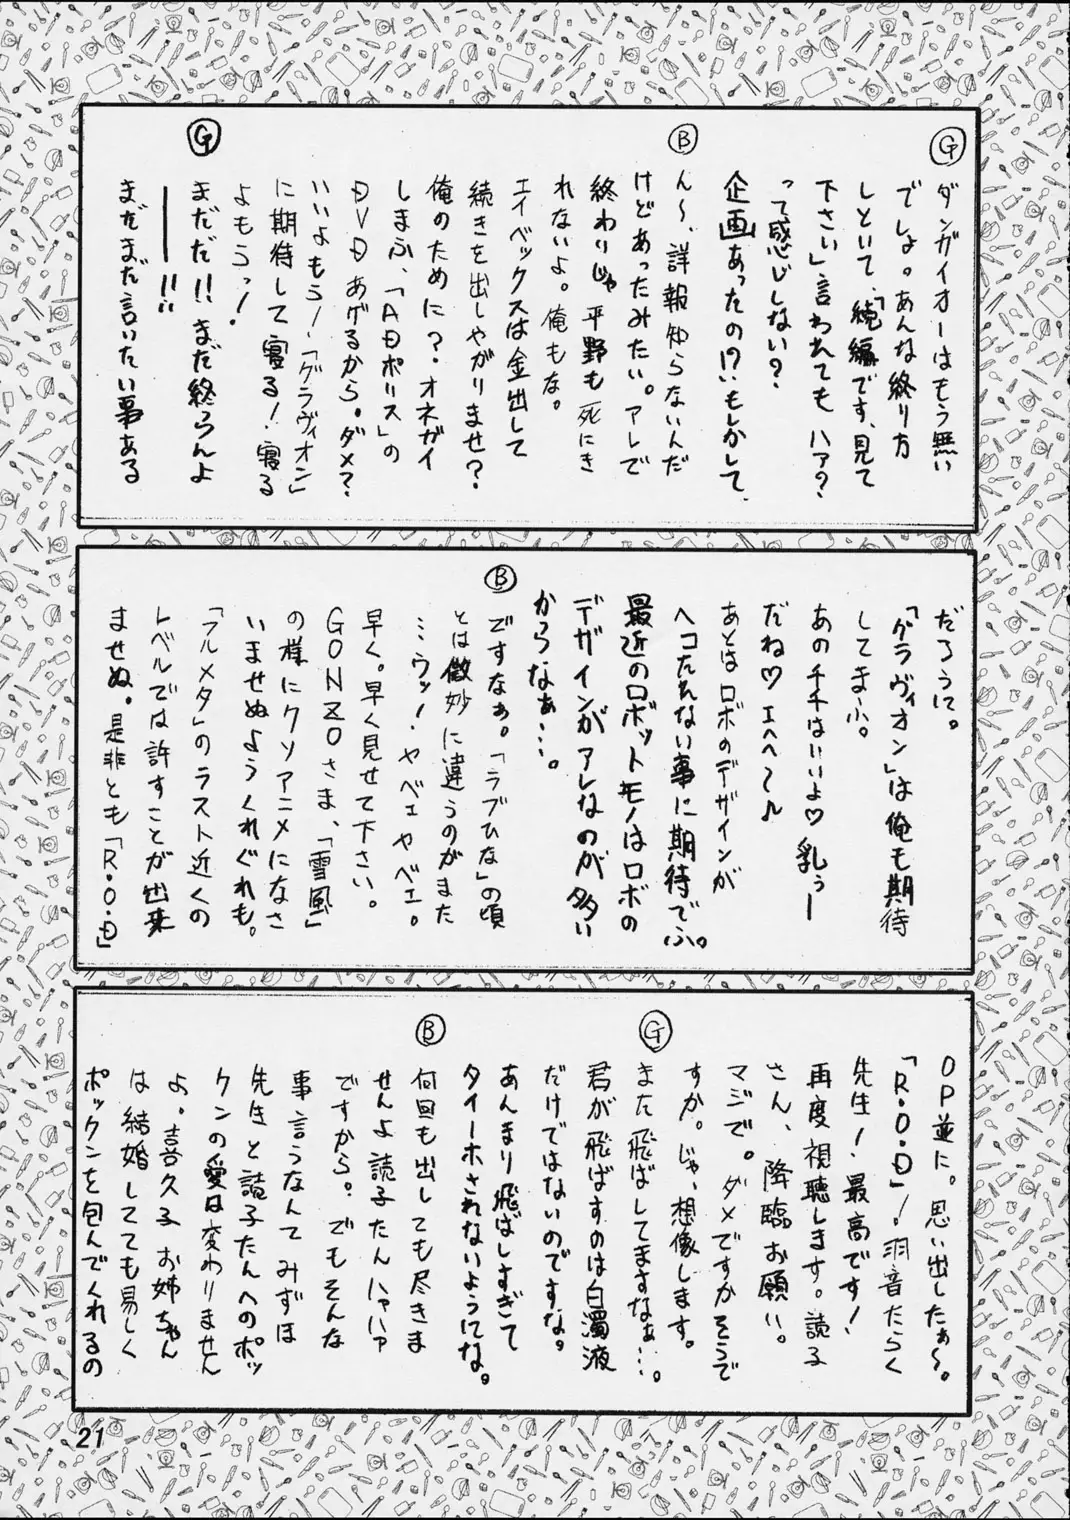 Ⓖ
ダンガイオーはもう無い
でしょ。あんな終り方
しといて、「続編です、見て
下さい」言われても ハァ?
って感じしない?
企画あったの!?、もしかして、
Ⓑ
ん〜、詳報知らないんだ
けどあったみたい。アレで
終わりじゃ 平野も 死にき
れないよ。俺もな。
エイベックスは金出して
続きを出しやがりませ?
俺のために?オネガイ
しまふ、「ADポリス」の
DVDあげるから。ダメ?
いいよもう!「グラヴィオン」
に期待して 寝る! 寝る
よもうっ!
Ⓖ
まだだ!!まだ終らんよ
――――!!
まだまだ言いたい事ある
だろうに。
「グラヴィオン」は俺も期待
してまふ。
あのチチはいいよ♡ 乳ぅー
だね♡ エヘヘ〜♪
あとはロボのデザインが
ヘコたれない事に期待でふ。
最近のロボットモノはロボの
デザインがアレなのが多い
からなぁ…。
Ⓑ
ですなぁ。「ラブひな」の頃
とは微妙に違うのがまた
…ウッ!ヤベェヤベェ。
早く。早く見せて下さい。
GONZOさま、「雪風」
の様にクソアニメになさ
いませぬようくれぐれも。
「フルメタ」のラスト近くの
レベルでは許すことが出来
ませぬ。是非とも「R・O・D」
OP並に。思い出したぁ〜。
「R・O・D」!羽音たらく
先生!最高です!
再度視聴します。読子
さん、降臨お願い。
マジで。ダメですかそうで
すか。じゃ、想像します。
Ⓖ
また飛ばしてますなぁ…。
君が飛ばすのは白濁液
だけではないのですな。
あんまり飛ばしすぎて
タイーホされないようにな。
Ⓑ
何回も出しても尽きま
せんよ読子たんハァハァ
ですから。でもそんな
事言うなんて みずほ
先生と読子たんへのボッ
クンの愛は変わりません
よ。喜久子お姉ちゃん
は結婚してても易しく
ボックンを包んでくれるの
21